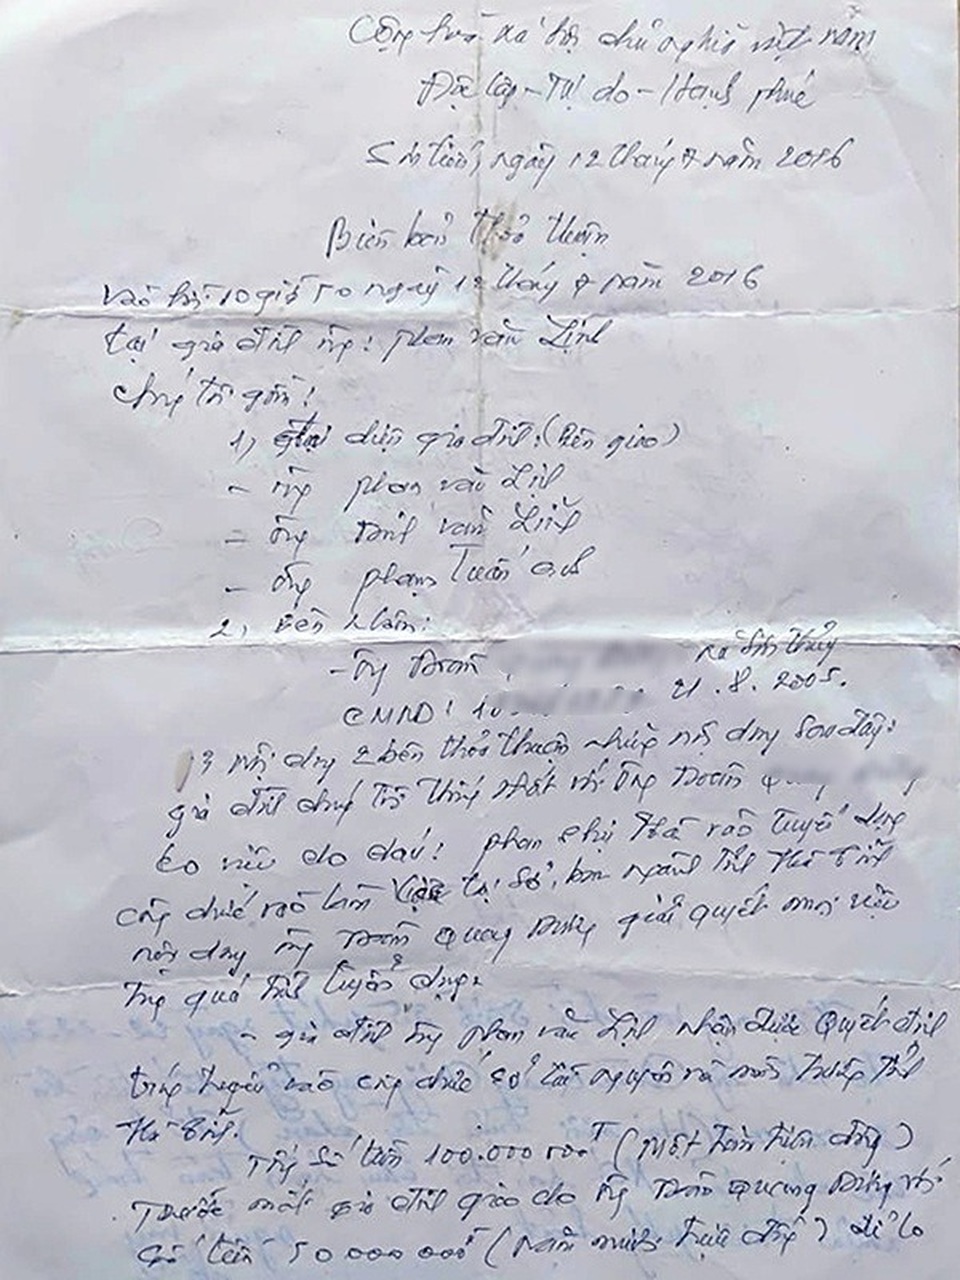 Cộng hòa xã hội chủ nghĩa việt nam
Độc lập - Tự do - Hạnh phúc
ngày 12 tháng 7 năm 2016
Biên bản thỏa thuận
vào hồi 10 giờ 50 ngày 12 tháng 7 năm 2016
tại gia đình ông: phan văn Lịnh
chúng tôi gồm:
1, đại diện gia đình: (Bên giao)
- ông phan văn Lịnh
- ông văn Lĩnh
- ông phạm Tuấn anh
2, Bên nhận:
- ông Doãn
21.8.2005.
CMND: 10
3 nội dung 2 bên thỏa thuận những nội dung sau đây:
gia đình chúng tôi thống nhất với ông Doãn Q
lo việc cho cháu: phan thị Hà vào tuyển dụng
công chức vào làm việc tại sở, ban ngành tỉnh Hà Tĩnh
nội dung ông Doãn Quang Dũng giải quyết mọi việc
trong quá trình tuyển dụng.
- gia đình ông phan văn Lịnh nhận được Quyết định
trúng tuyển vào công chức sở tài nguyên và môi trường tỉnh
Hà Tĩnh.
Tổng số tiền 100.000.000đ (Một trăm triệu đồng)
Trước mắt gia đình giao cho ông Doãn Quang Dũng với
số tiền 50 000 000đ (năm mươi triệu đồng) để lo